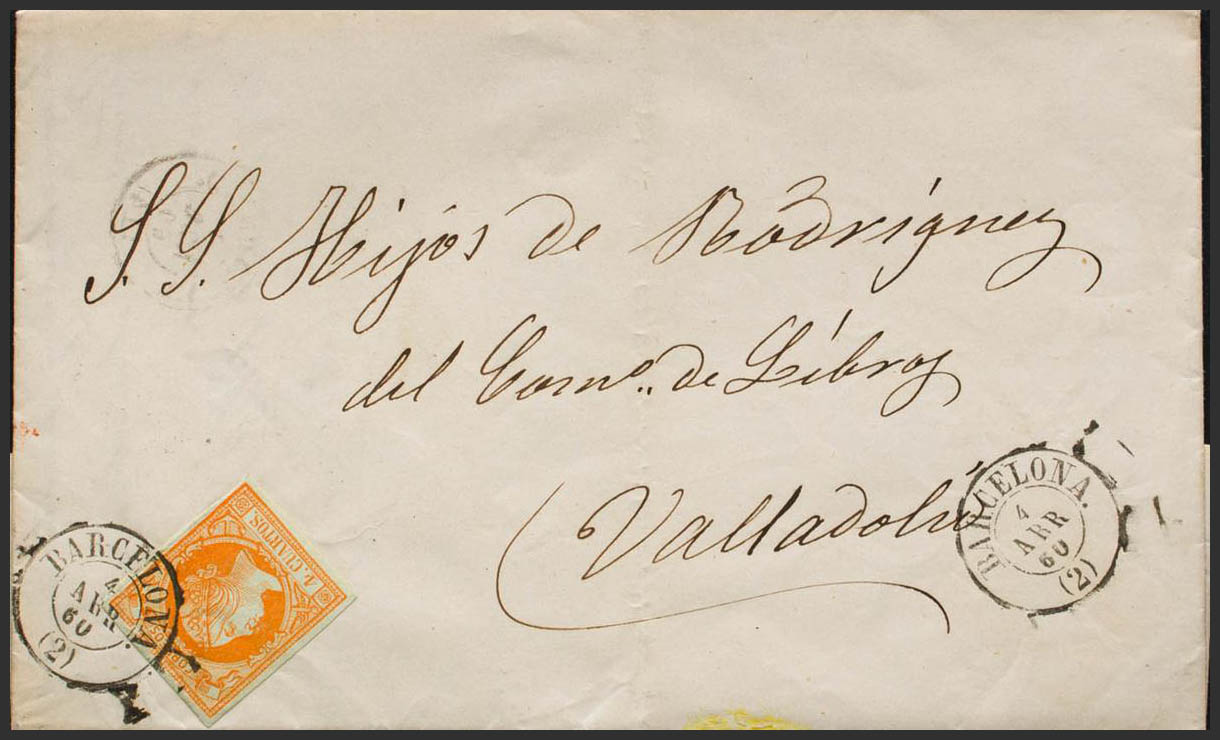 S. S. Hijos de Rodriguez
del Como. de Libros
Valladolid
BARCELONA.
4
ABR
60
(2)
4 CUARTOS
BARCELONA.
4
ABR
60
(2)